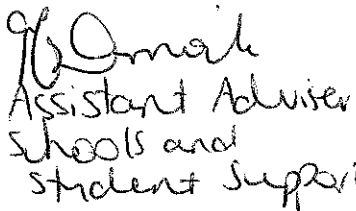 Assistant Adviser
Schools and
Student Suppor